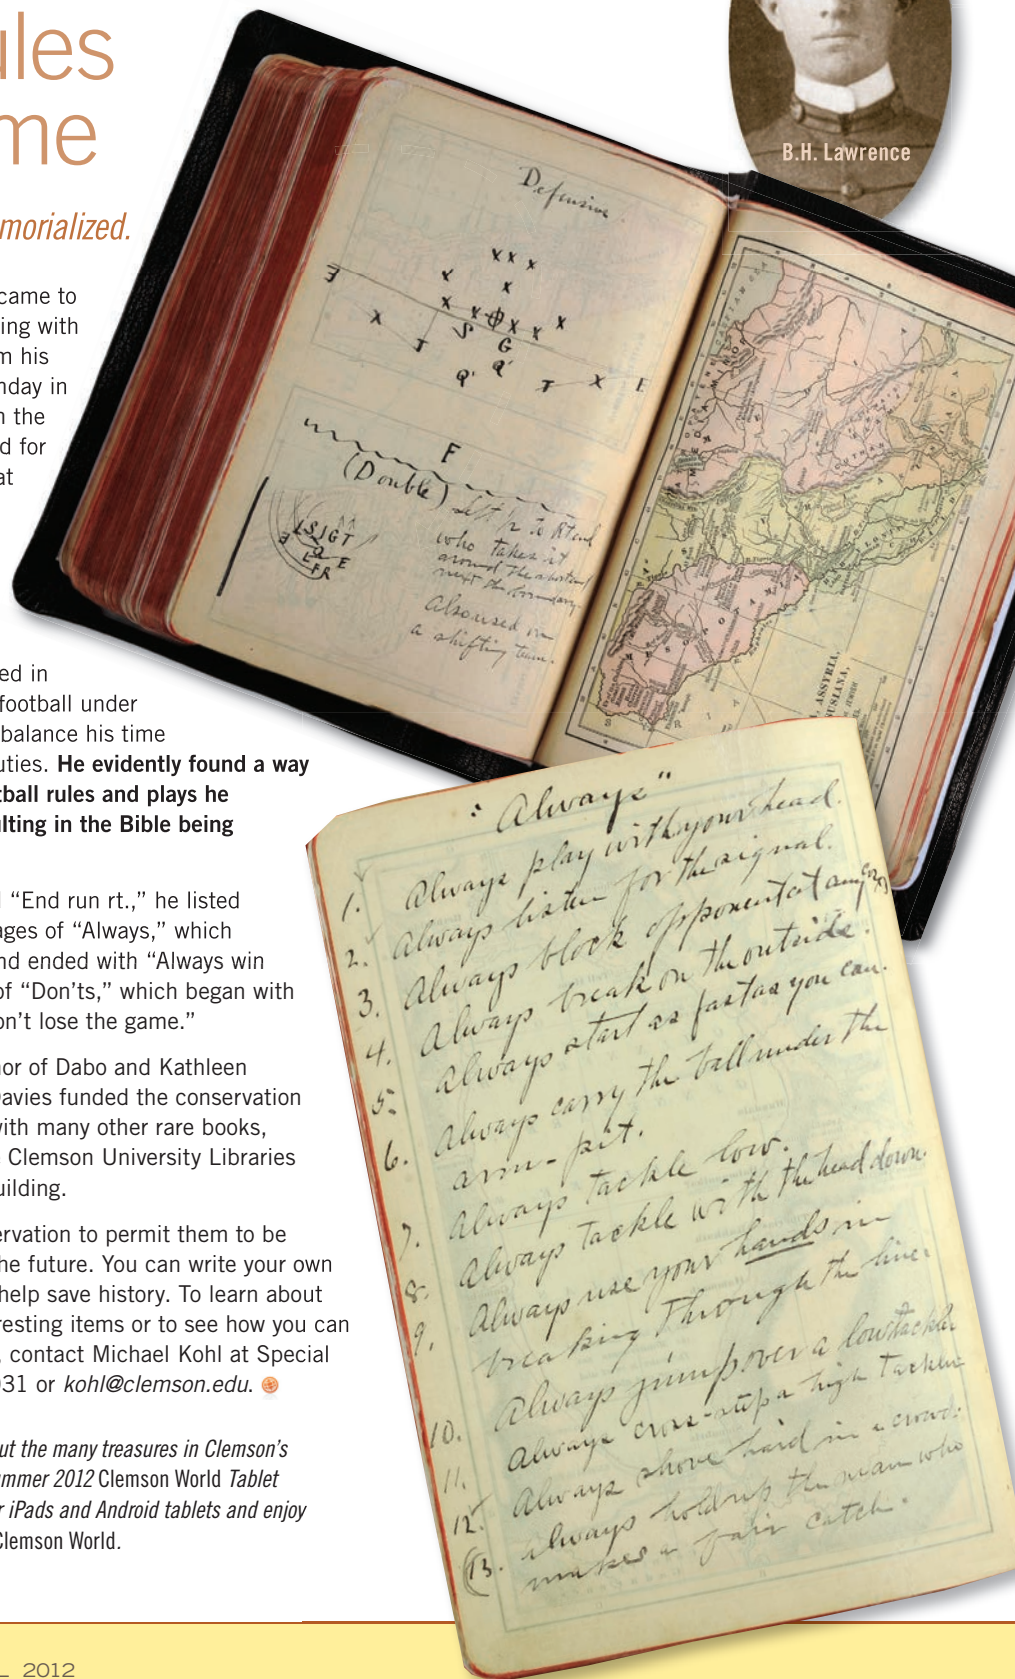 ules
me
morialized.
came to
ing with
m his
nday in
n the
d for
at
ed in
football under
balance his time
uties. He evidently found a way
tball rules and plays he
ulting in the Bible being
“End run rt.,” he listed
ages of “Always,” which
nd ended with “Always win
of “Don’ts,” which began with
on’t lose the game.”
nor of Dabo and Kathleen
Davies funded the conservation
with many other rare books,
Clemson University Libraries
uilding.
ervation to permit them to be
he future. You can write your own
help save history. To learn about
resting items or to see how you can
, contact Michael Kohl at Special
931 or kohl@clemson.edu.
ut the many treasures in Clemson’s
ummer 2012 Clemson World Tablet
r iPads and Android tablets and enjoy
Clemson World.
L 2012
B.H. Lawrence
Defensive
F
(Double) Left ½ to Rt end
who takes it
around the short end
next the boundary.
Also used in
a shifting team.
CASPIAN SEA
MESOPOTAMIA
ASSYRIA,
SUSIANA,
"Always"
1. Always play with your head.
2. Always listen for the signal.
3. Always block opponent at any cost
4. Always break on the outside.
5. Always start as fast as you can.
6. Always carry the ball under the
arm-pit.
7. Always tackle low.
8. Always tackle with the head down.
9. Always use your hands in
breaking through the line.
10. Always jump over a low tackler
11. Always cross-step a high tackler
12. Always shove hard in a crowd.
13. Always hold up the man who
makes a fair catch.